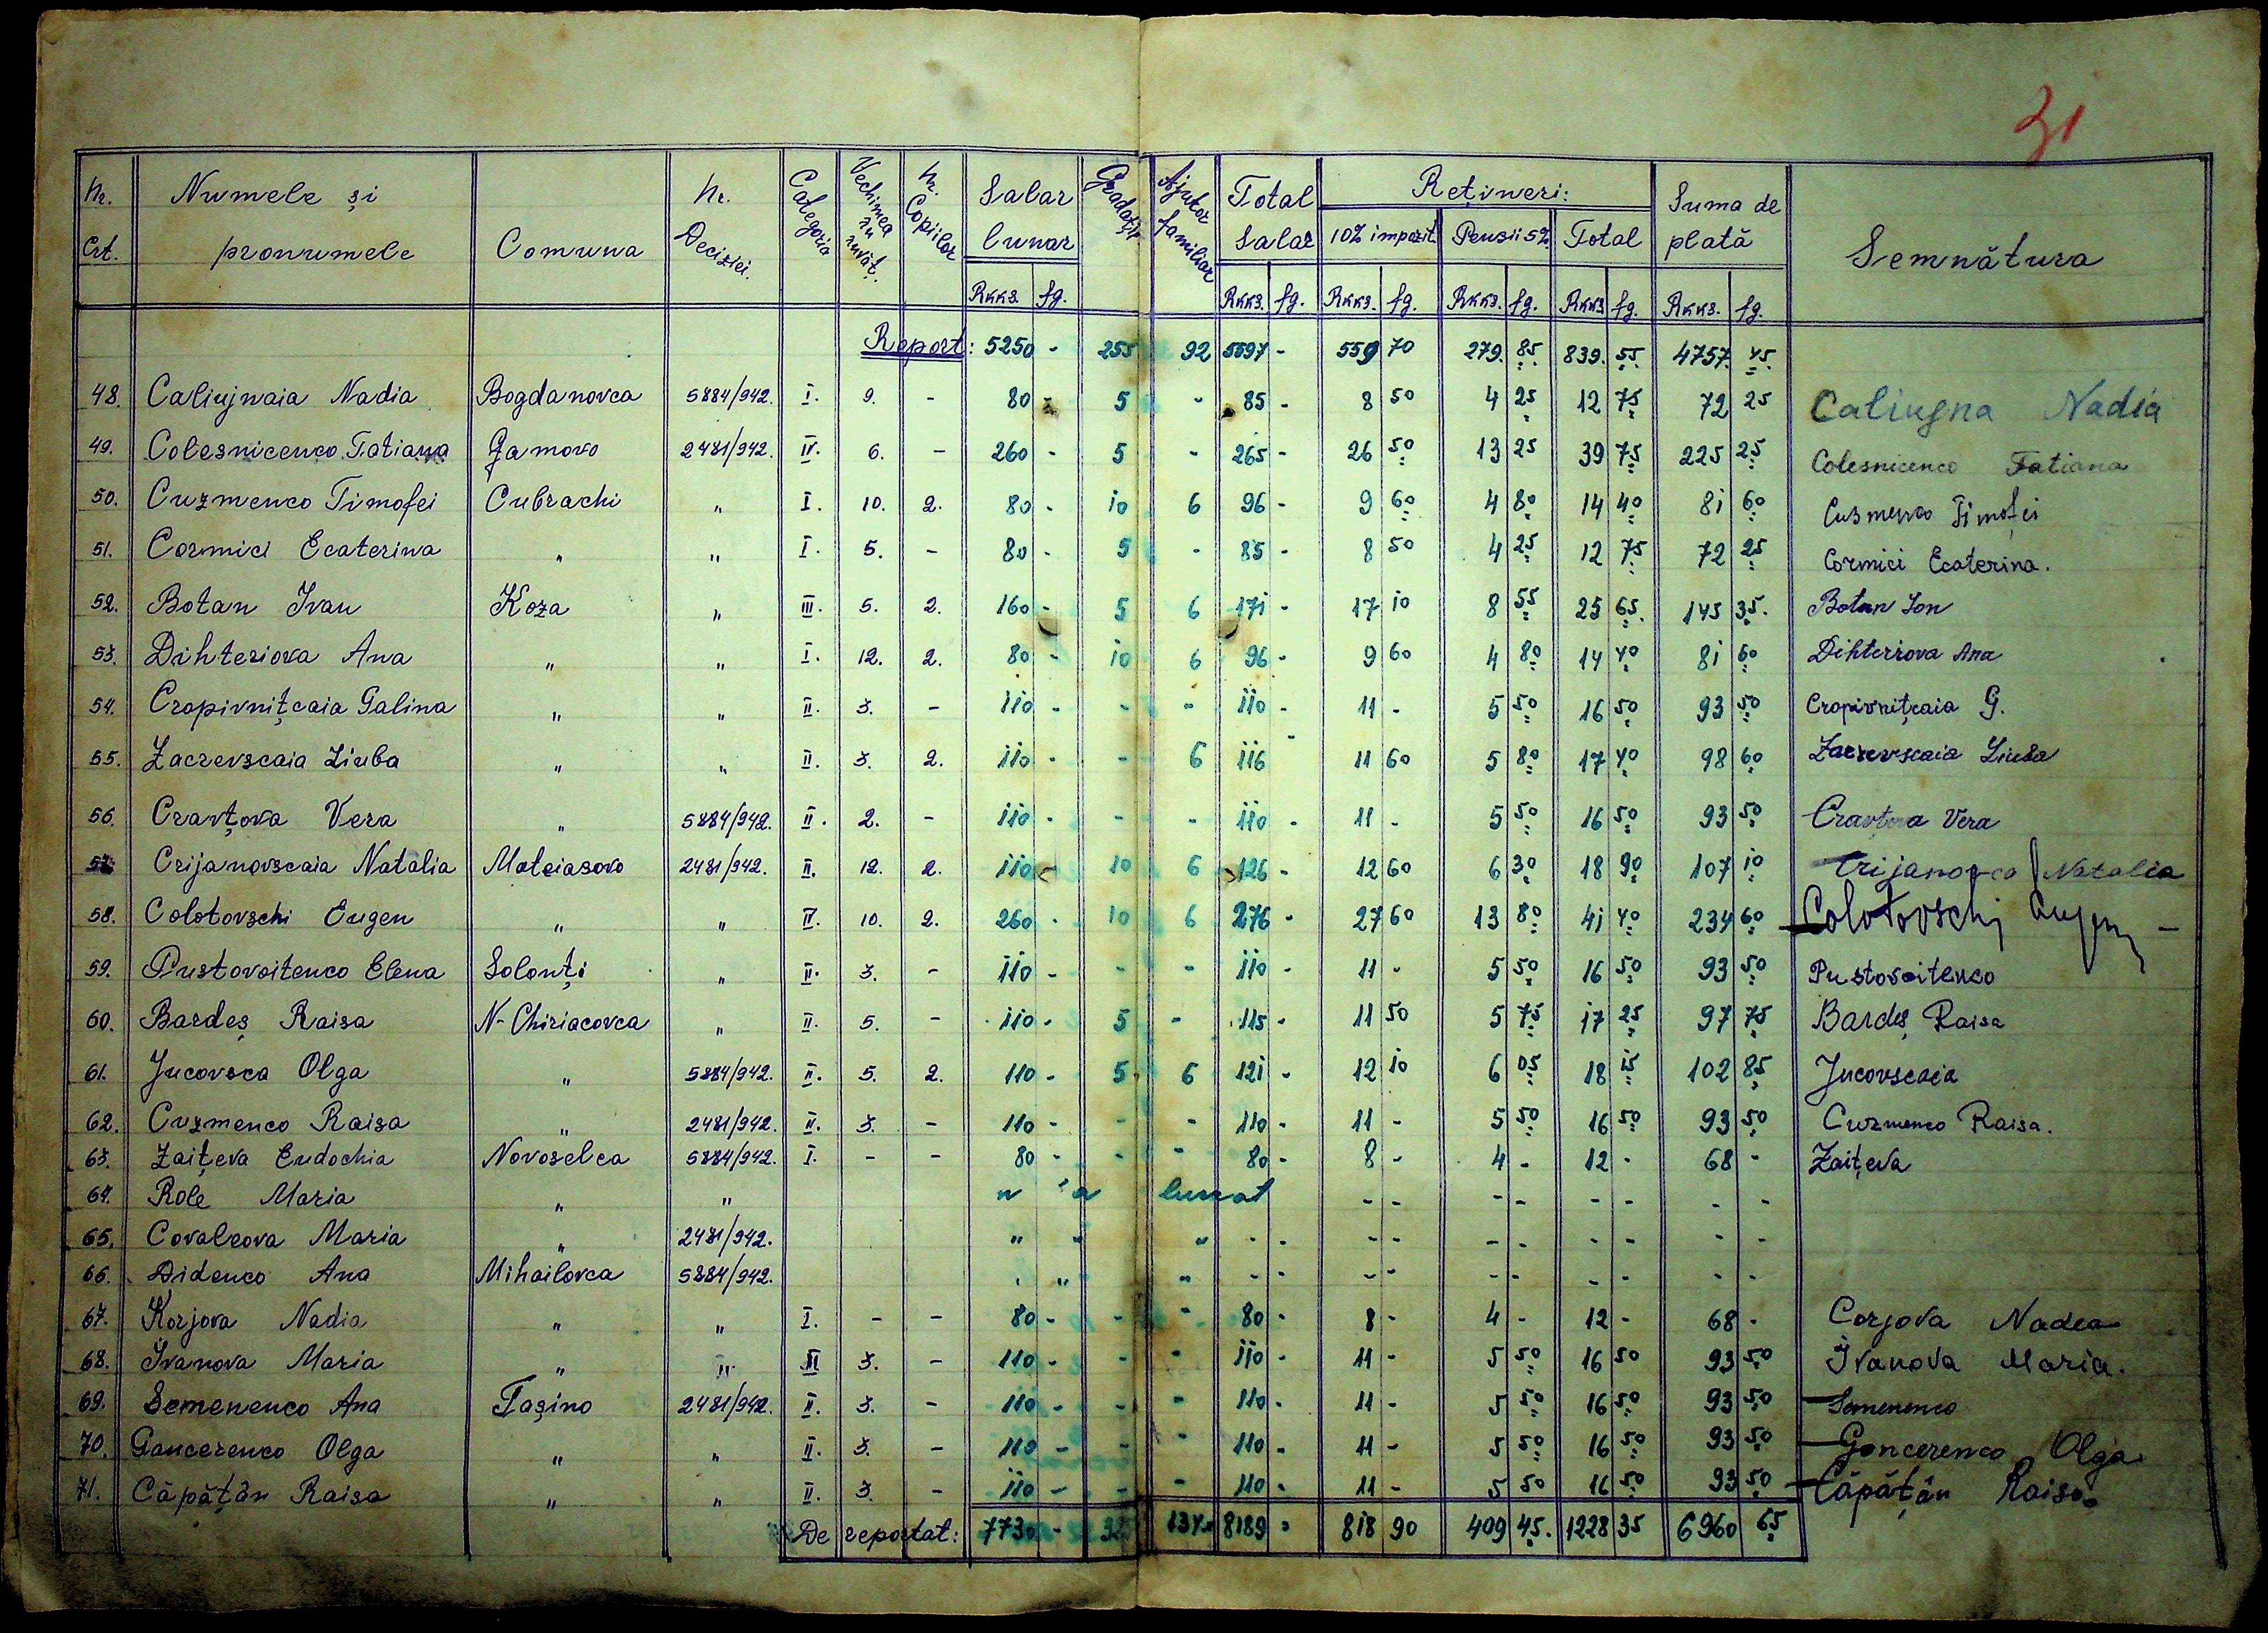 31
Nr. Crt. Numele și pronumele Comuna Nr. Deciziei Categoria Vechimea în învăț. Nr. Copiilor Salar lunar Gradații Ajutor familiar Total Salar Rețineri: Suma de plată Semnătura
10% impozit Pensii 5% Total
RKKS. fg. RKKS. fg. RKKS. fg. RKKS. fg. RKKS. fg. RKKS. fg.
Report: 5250 - 255 92 5597 - 559 70 279. 85 839. 55 4757. 45
48. Caliujnaia Nadia Bogdanovca 5884/942. I. 9. - 80 - 5 - 85 - 8 50 4 25 12 75 72 25 Caliugna Nadia
49. Colesnicenco Tatiana Gamovo 2481/942. IV. 6. - 260 - 5 - 265 - 26 50 13 25 39 75 225 25 Colesnicenco Tatiana
50. Cuzmenco Timofei Cubrachi " I. 10. 2. 80 - 10 6 96 - 9 60 4 80 14 40 81 60 Cusmenco Timofei
51. Cormici Ecaterina " " I. 5. - 80 - 5 - 85 - 8 50 4 25 12 75 72 25 Cormici Ecaterina.
52. Botan Ivan Koza " III. 5. 2. 160 - 5 6 171 - 17 10 8 55 25 65. 145 35. Botan Ion
53. Dihteriova Ana " " I. 12. 2. 80 - 10 6 96 - 9 60 4 80 14 40 81 60 Dihteriova Ana
54. Cropivnițcaia Galina " " II. 3. - 110 - - - 110 - 11 - 5 50 16 50 93 50 Cropivnițcaia G.
55. Zacrevscaia Liuba " " II. 3. 2. 110 - - 6 116 - 11 60 5 80 17 40 98 60 Zacrevscaia Liuba
56. Cravțova Vera " 5884/942. II. 2. - 110 - - - 110 - 11 - 5 50 16 50 93 50 Cravțova Vera
57. Crijanovscaia Natalia Mateiasovo 2481/942. II. 12. 2. 110 - 10 6 126 - 12 60 6 30 18 90 107 10 Crijanovca Natalia
58. Colotovschi Eugen " " IV. 10. 2. 260 - 10 6 276 - 27 60 13 80 41 40 234 60 Colotovschi Eugen
59. Pustovoitenco Elena Solonți " II. 3. - 110 - - - 110 - 11 - 5 50 16 50 93 50 Pustovoitenco
60. Bardeș Raisa N-Chiriacovca " II. 5. - 110 - 5 - 115 - 11 50 5 75 17 25 97 75 Bardeș Raisa
61. Jucovsca Olga " 5884/942. II. 5. 2. 110 - 5 6 121 - 12 10 6 05 18 15 102 85 Jucovscaia
62. Cuzmenco Raisa " 2481/942. II. 3. - 110 - - - 110 - 11 - 5 50 16 50 93 50 Cuzmenco Raisa.
63. Zaițeva Eudochia Novoselca 5884/942. I. - - 80 - - - 80 - 8 - 4 - 12 - 68 - Zaițeva
64. Role Maria " " n'a lucrat - - - - - - - -
65. Covaleova Maria " 2481/942. " " " - - - - - - - - - -
66. Didenco Ana Mihailovca 5884/942. " " - - - - - - - - - -
67. Korjova Nadia " " I. - - 80 - - - 80 - 8 - 4 - 12 - 68 - Corjova Nadea
68. Ivanova Maria " " II 3. - 110 - - - 110 - 11 - 5 50 16 50 93 50 Ivanova Maria.
69. Semenenco Ana Tașino 2481/942. II. 3. - 110 - - - 110 - 11 - 5 50 16 50 93 50 Semenenco
70. Gancerenco Olga " " II. 3. - 110 - - - 110 - 11 - 5 50 16 50 93 50 Goncerenco Olga
71. Căpățân Raisa " " II. 3. - 110 - - - 110 - 11 - 5 50 16 50 93 50 Căpățân Raisa
De reportat: 7730 - 325 134 - 8189 - 818 90 409 45. 1228 35 6960 65